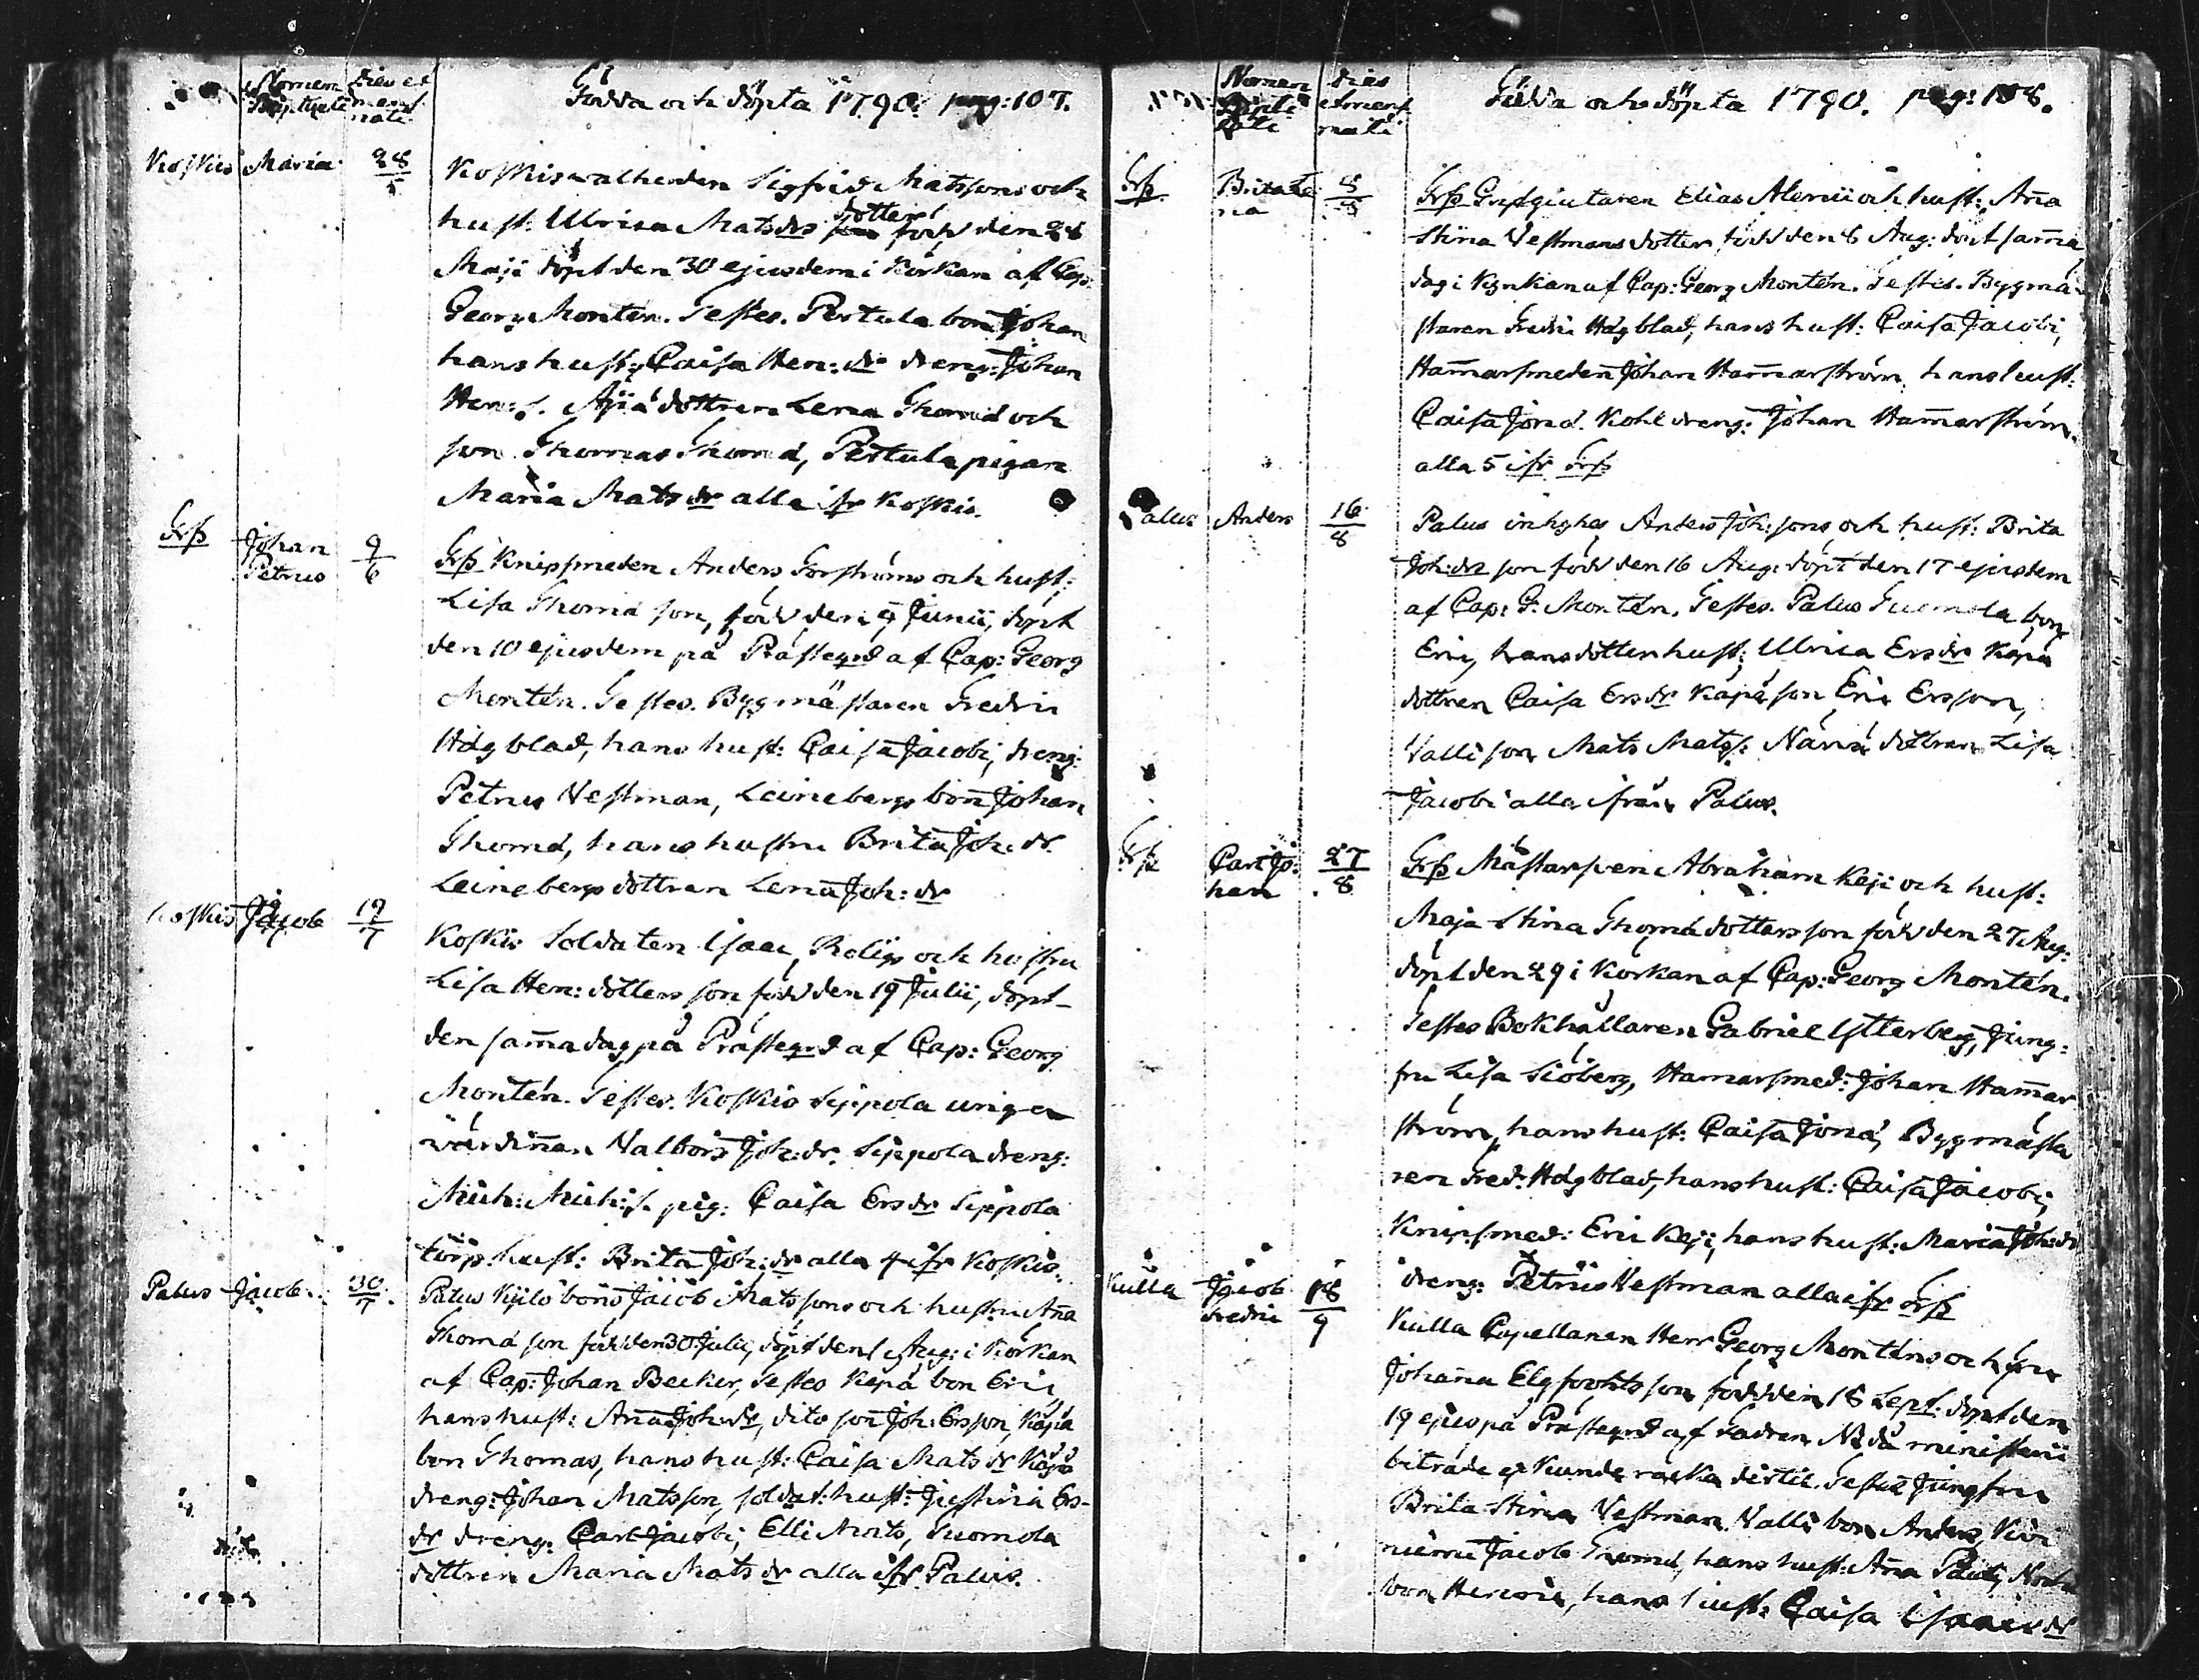 Nomen Baptizati
Dies et mens nati
Födda och döpta 1790. pag: 107.
Koskis Maria 28/5
Koskis walherden Sigfrid Matssons och
hust: Ulrica Mats dr dotter född den 28
Maji döpt den 30 ejusdem i Kÿrkan af Cap:
Georg Montén. Testes. Pertula bon Johan
hans hust: Caisa Hen: dr dreng: Johan
Hen: s. Äijä dottren Lena Thomæ och
son Thomas Thomæ, Pertula pigan
Maria Mats dr alla ifr Koskis.
Frß Johan Petrus 9/6
Frß Knipsmeden Anders Forströms och hust:
Lisa Thomæ son, född den 9 Junii, döpt
den 10 ejusdem på Prästegrd af Cap: Georg
Montén. Testes. Byggmästaren Fredric
Högblad, hans hust: Caisa Jacobi, dreng:
Petrus Vestman, Leinebergs bon Johan
Thomæ, hans hustru Brita Joh: dr.
Leinebergs dottren Lena Joh: dr
Koskis Jacob 19/7
Koskis Soldaten Isaac Roligs och hustru
Lisa Hen: dotters son född den 19 Julii, döpt
den samma dag på Prästegrd af Cap: Georg
Montén. Testes. Koskis Seppola unga
värdinnan Valborg Joh: dr. Seppola dreng:
Mich: Mich: s. pig: Caisa Ers dr Seppola
torp: hust: Brita Joh: dr alla 4 ifr Koskis.
Palus Jacob 30/7
Palus Kÿilö bons Jacob Matssons och hustru Aña
Thomæ son född den 30 Julii, döpt den 1 Aug: i Kÿrkan
af Cap: Johan Becker, Testes Käpä bon Eric
hans hust: Aña Joh: dr, dito son Joh: Ersson, Käpä
bon Thomas, hans hust: Caisa Mats dr Käpä
dreng: Johan Matsson, soldat: hust: Justina Ers-
dr dreng: Carl Jacobi, Elli Mats, Tuomola
dottren Maria Mats dr alla ifr Palus.
Nomen Baptizati
Dies et mens nati
Födda och döpta 1790. pag: 108.
Frß Brita Lena 8/8
Frß Grytgiutaren Elias Alenii och hust: Aña
Stina Vestmans dotter, född den 8 Aug: döpt samma
dag i Kÿrkan af Cap: Georg Montén. Testes. Byggmä-
staren Fredric Högblad, hans hust: Caisa Jacobi,
Hamarsmeden Johan Hamarström, hans hust:
Caisa Jonæ. Kohl dreng: Johan Hamarström.
alla 5 ifr Frß
Palus Anders 16/8
Palus inhyses Anders Joh: sons och hust: Brita
Joh: dr son född den 16 Aug: döpt den 17 ejusdem
af Cap: G: Montén. Testes. Palus Tuomola bon
Eric, hans dotter hust: Ulrica Ers dr Käpä
dottren Caisa Ers dr Käpä son Eric Ersson,
Valli son Mats Mats s: dottren Lisa
Jacobi alla ifrån Palus.
Frß Carl Johan 27/8
Frß Mästarsven Abraham Keji och hust:
Maja Stina Thomæ dotters son född den 27 Aug:
döpt den 29 i Kÿrkan af Cap: Georg Montén.
Testes Bokhållaren Gabriel Ytterberg, Jung:
fru Lisa Siöberg, Hamarsmed: Johan Hamar
ström, hans hust: Caisa Jonæ, Byggmästa
ren Fred: Högblad, hans hust: Caisa Jacobi,
Knipsmed: Eric Keji, hans hust: Maria Joh: dr
dreng: Petrus Vestman alla ifr Frß
Kulla Jacob Fredric 18/9
Kulla Capellanen Herr Georg Monténs och fru
Johanna Elgfoohts son född den 18 Sept. döpt den
19 ejus på Prästegrd af fadren NB då ministerii
biträde ej kunde räcka dertil. Testes Jungfru
Brita Stina Vestman. Valli bon Anders, Kivi
niemi Jacob Thomæ, hans hust: Aña Pauli,
bon Henric, hans hust: Caisa Isaacs dr